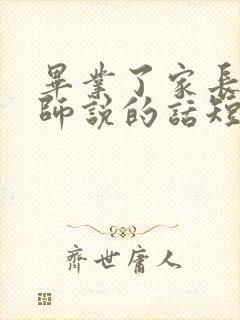 畢業了家長
師說的話短
齊世庸人